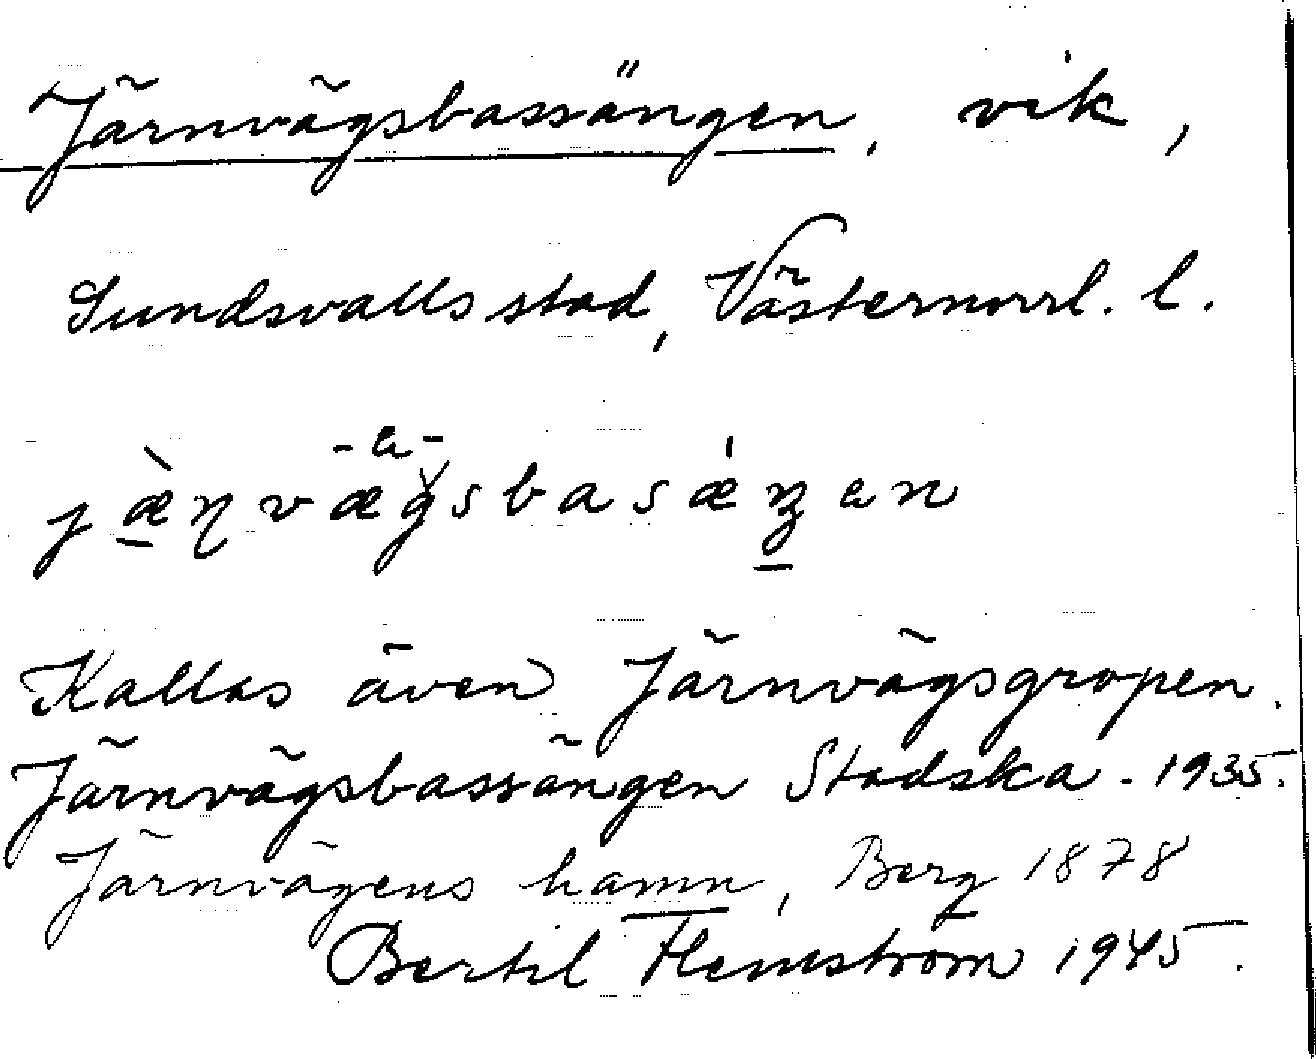 Järnvägsbassängen, vik,
Sundsvalls stad, Västernorrl. l.
-a-
jæ̀ɳvægsbasǽŋen
Kallas även Järnvägsgropen.
Järnvägsbassängen Stadska - 1935.
Järnvägens hamn, Berg 1878
Bertil Flemström 1945.